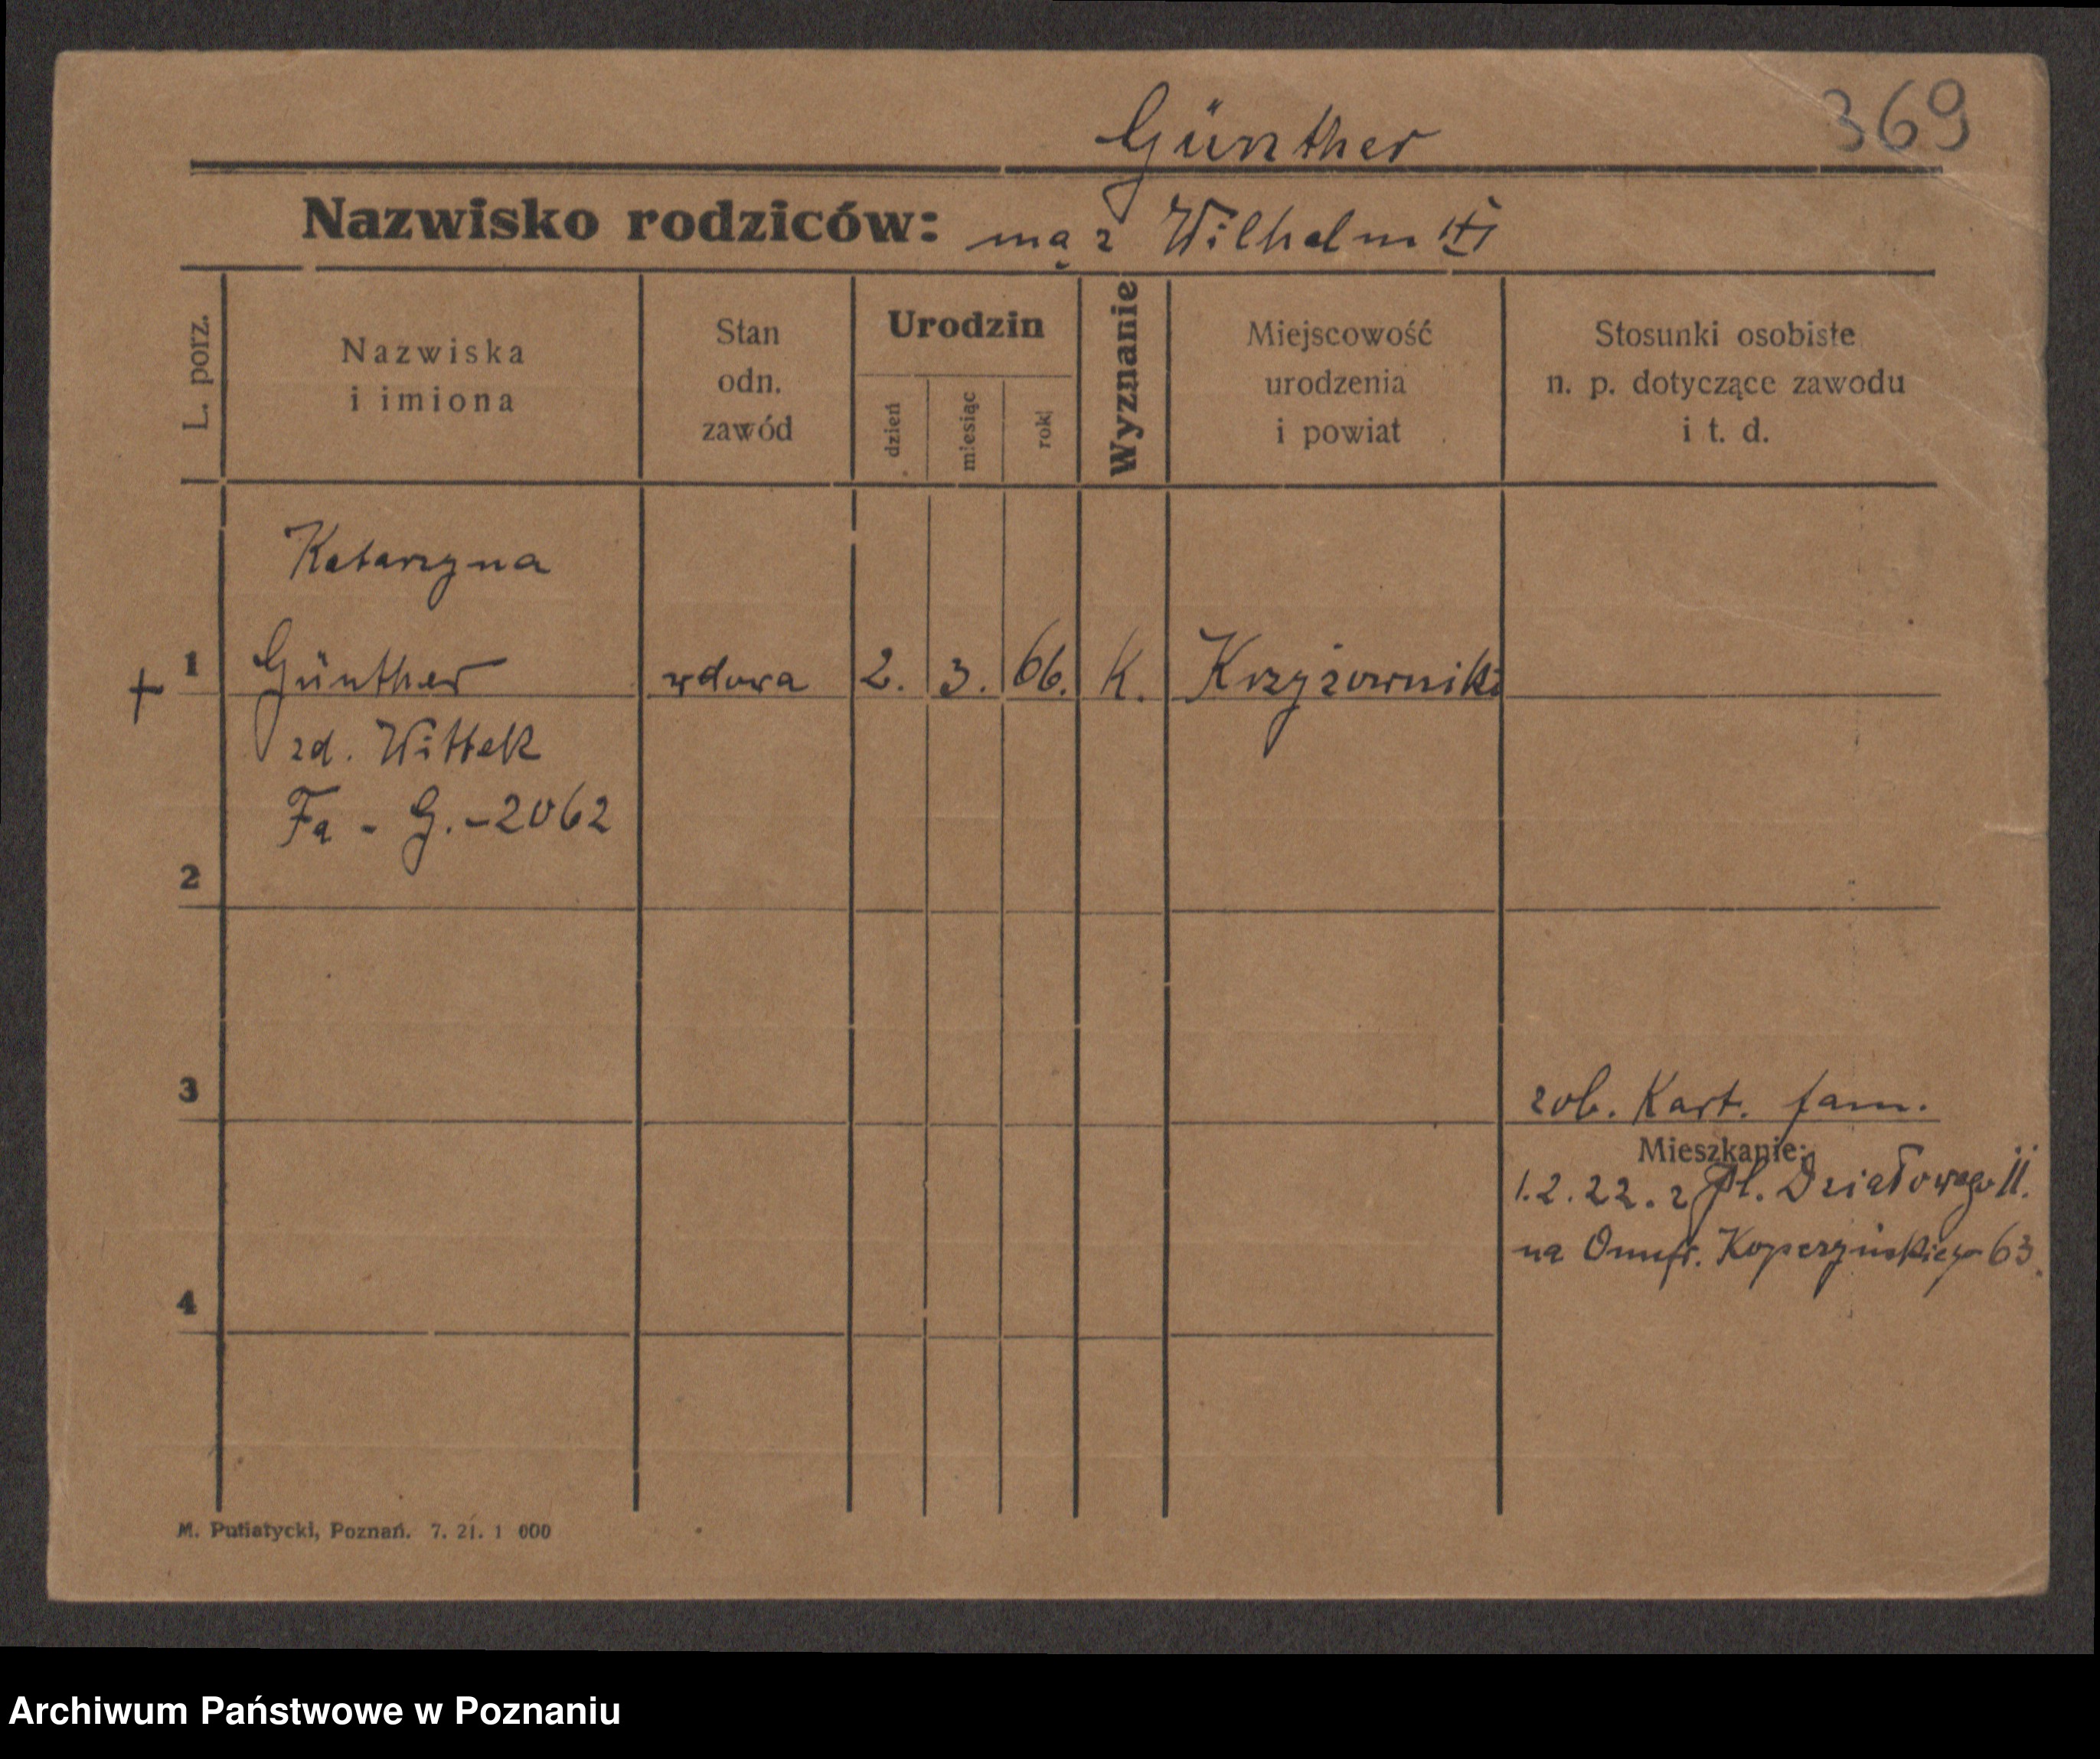 369
Günther
Nazwisko rodziców: mąż Wilhelm
L. porz.
Nazwiska
i imiona
Stan
odn.
zawód
Urodzin
dzień
miesiąc
rok
Wyznanie
Miejscowość
urodzenia
i powiat
Stosunki osobiste
n. p. dotyczące zawodu
i t. d.
Katarzyna
+ 1 Günther wdowa 2. 3. 66. K. Krzyżowniki
zd. Wittek
Fa - G. - 2062
2
3
zob. Kart. fam.
Mieszkanie:
1.2.22. z Pl. Działowego 11.
na Onufr. Kopczyńskiego 63.
4
M. Putiatycki, Poznań. 7. 21. 1 000
Archiwum Państwowe w Poznaniu